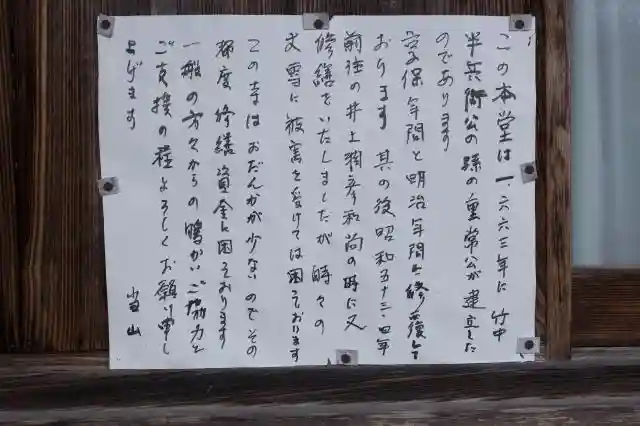 この本堂は一、六六三年に竹中
半兵衛公の孫の重常公が建立した
のであります
享保年間と明治年間に修復して
おります 其の後昭和五十三・四年
前住の井上 和尚の時に又
修繕をいたしましたが時々の
大雪に被害を受けては困っております
この寺はおだんかが少ないのでその
都度修繕資金に困っております
一般の方々からの暖かいご協力と
ご支援の程よろしくお願い申し
上げます
当山